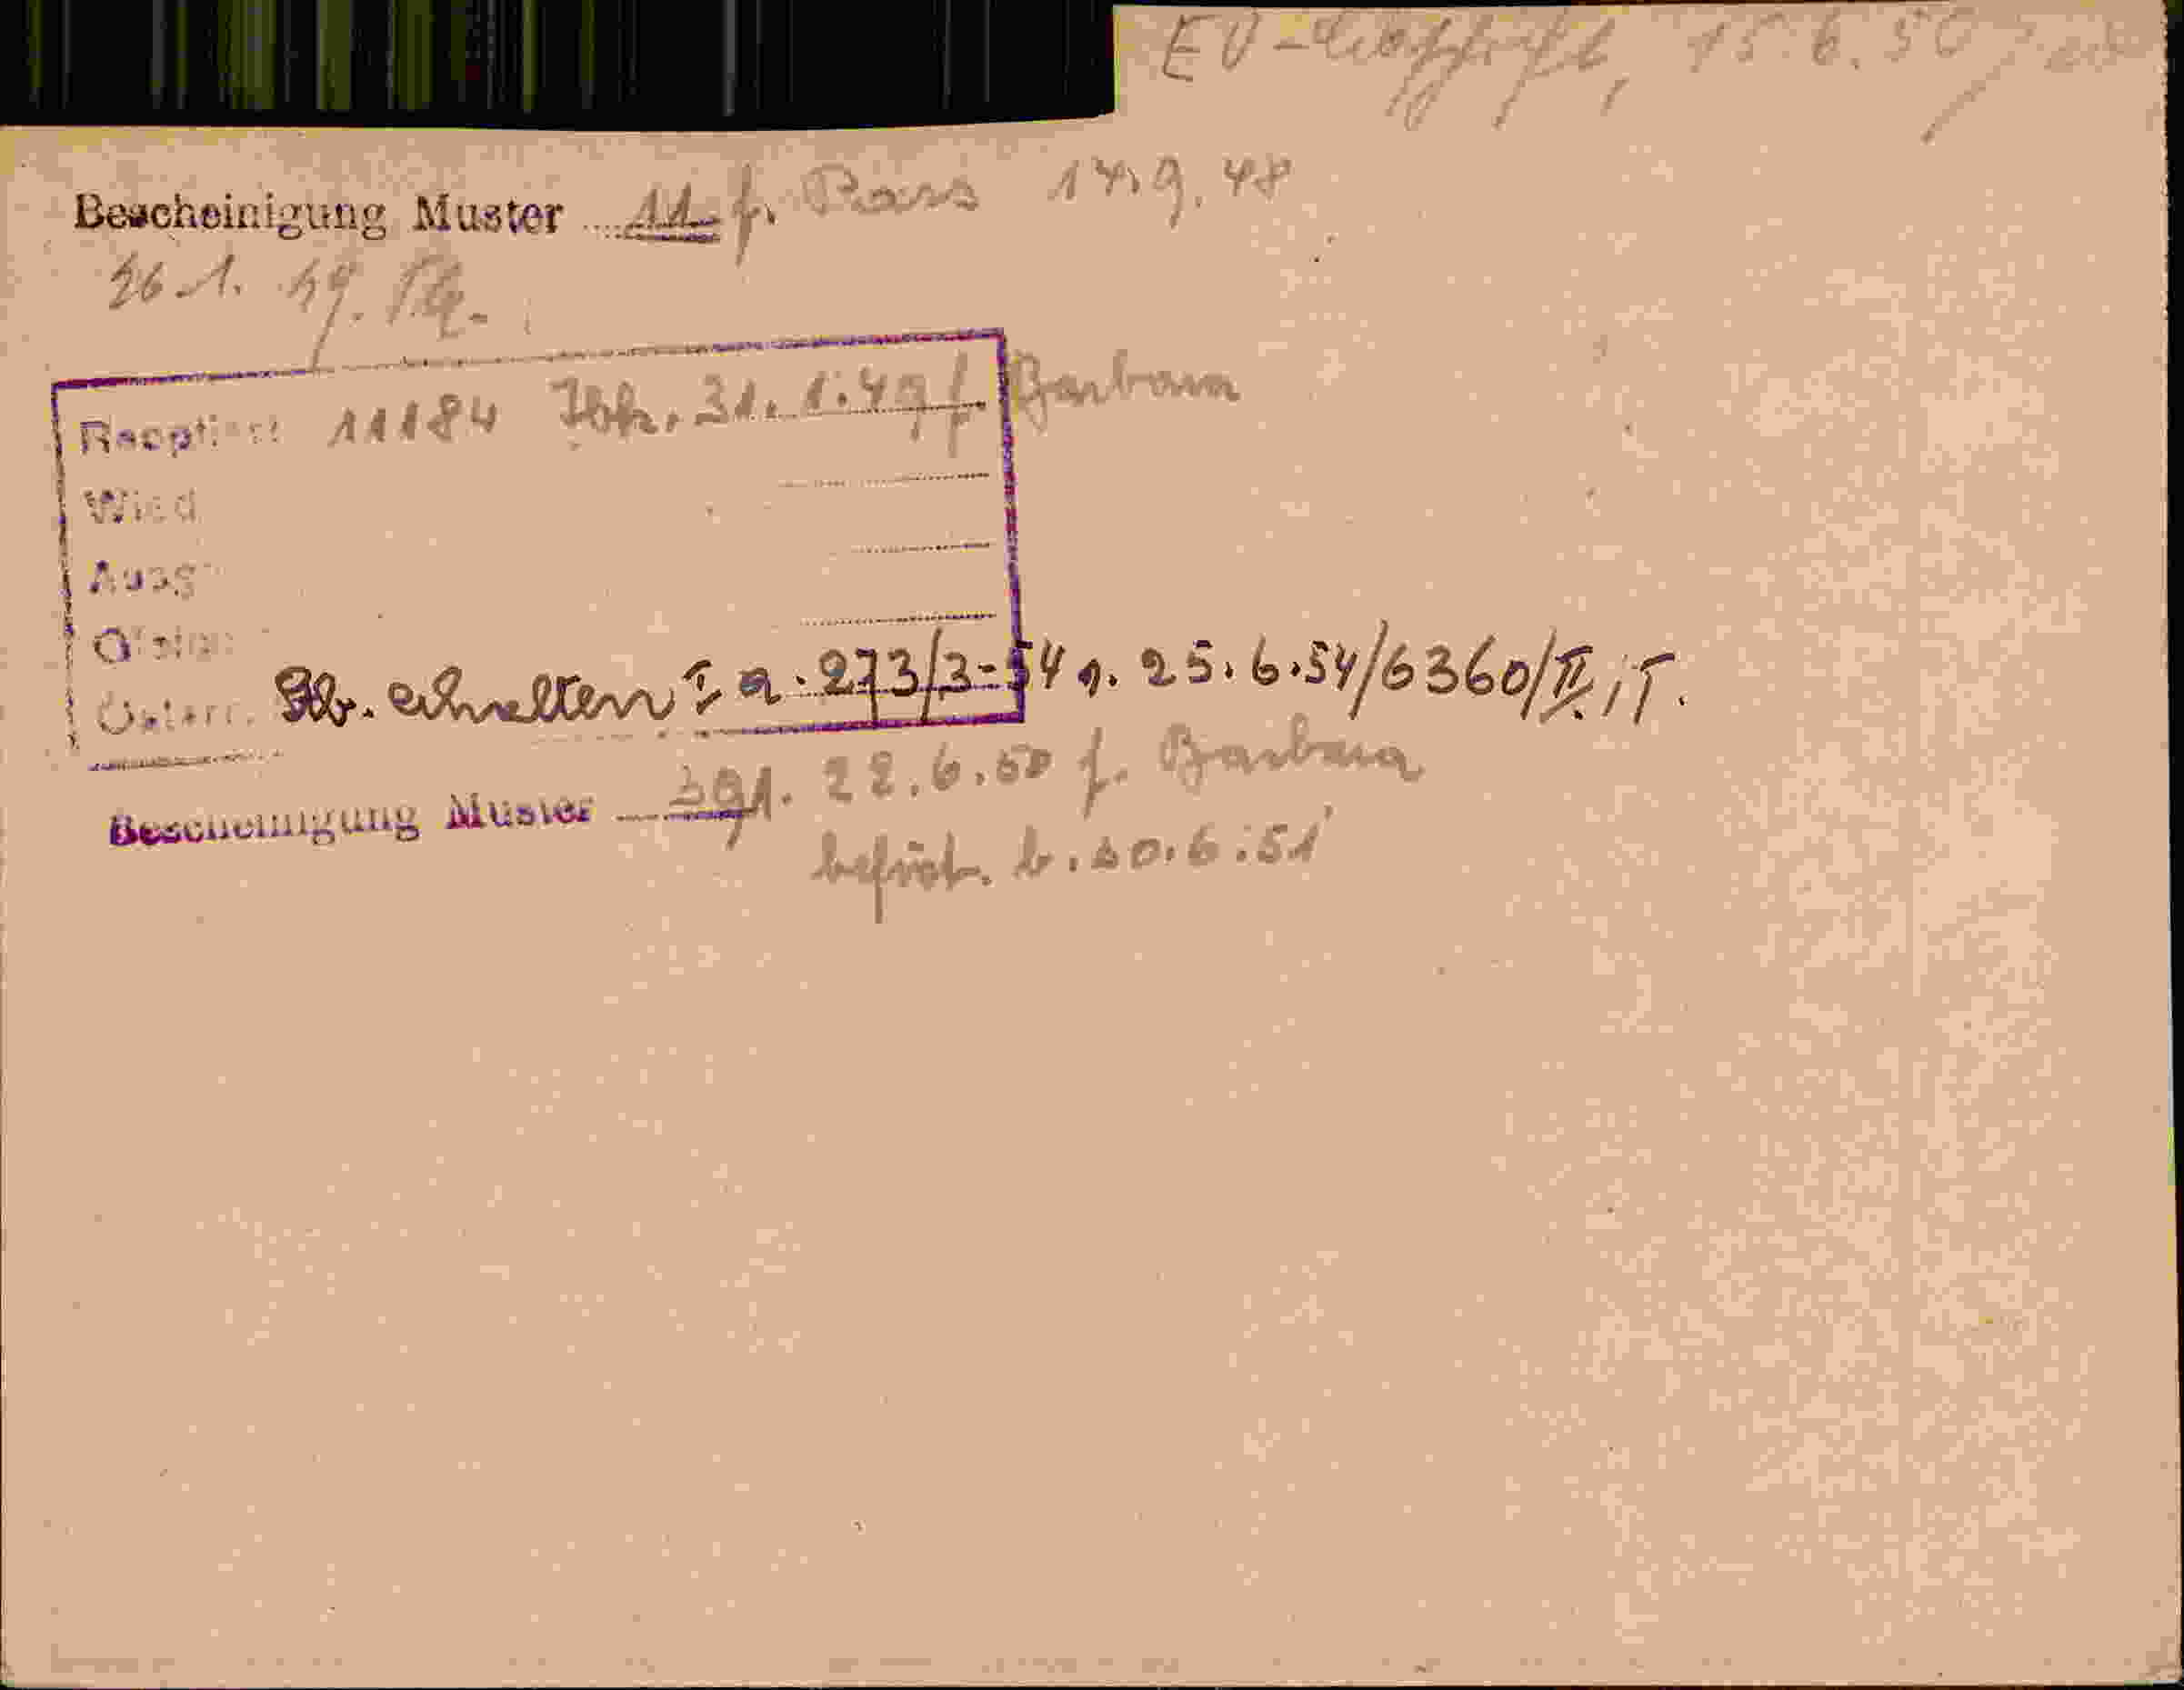 EV- 15.6.50
Bescheinigung Muster 11 f. Pass 14.9.48
26.1.49.
11184 Ibk. 31.1.49 f. Barbara
Wied
Ausg
Österr. Stb. erhalten I a. 273/3-54 v. 25.6.54/6360/II. iT.
Bescheinigung Muster 391. 22.6.50 f. Barbara
befrist. b. 30.6.51